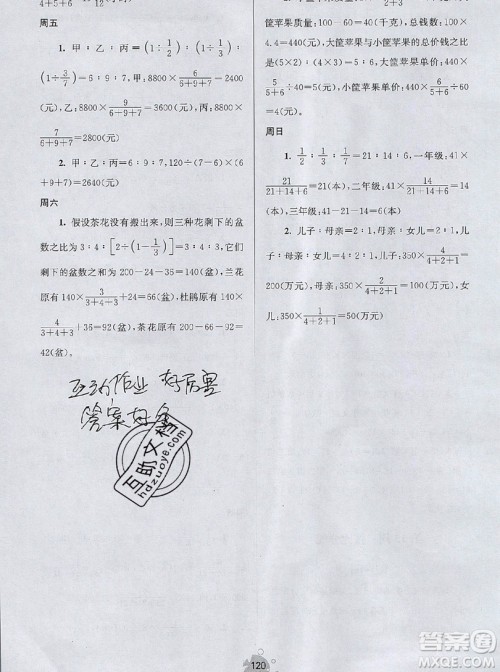 4+5+6
周五
1. 甲∶乙∶丙=(1÷1/2)∶(1÷1/3)∶
(1÷3/7)=6∶9∶7,甲:8800×6/(6+9+7)=2400
(元),乙:8800×9/(6+9+7)=3600(元),丙:8800×
7/(6+9+7)=2800(元)
2. 甲∶乙∶丙=6∶9∶7,120÷(7-6)×
(6+9+7)=2640(元)
周六
1. 假设茶花没有搬出来,则三种花剩下的盆
数之比为3∶4∶[2÷(1-1/3)]=3∶4∶3,它们
剩下的盆数之和为200-24-36=140(盆),兰花
原有140×3/(3+4+3)+24=66(盆),杜鹃原有140×
4/(4+3+3)+36=92(盆),茶花原有200-66-92=
42(盆)。
互动作业 有厉害
答案好多
筐苹果质量:100-60=40(千克),总钱数:100×
4.4=440(元),大筐苹果与小筐苹果的总价钱之比
为(2×5)∶(4×3)=5∶6,大筐苹果单价:440×
5/(5+6)÷40=5(元),小筐苹果单价:440×6/(5+6)÷
60=4(元)。
周日
1. 1/2∶1/3∶1/7=21∶14∶6,一年级:41×
21/(21+14+6)=21(本),二年级:41×14/(21+14+6)=
14(本),三年级:41-21-14=6(本)
2. 儿子∶母亲=2∶1,母亲∶女儿=2∶1,儿
子∶母亲∶女儿=4∶2∶1,儿子:350×4/(4+2+1)=
200(万元),母亲:350×2/(4+2+1)=100(万元),女
儿:350×1/(4+2+1)=50(万元)
互助文档
hdzuoye.com
120
答案圈
MXQE.COM